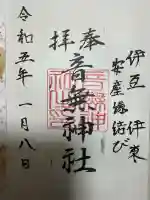 伊豆 伊東
安産 縁結び
奉拝
音無神社
令和五年 一月八日